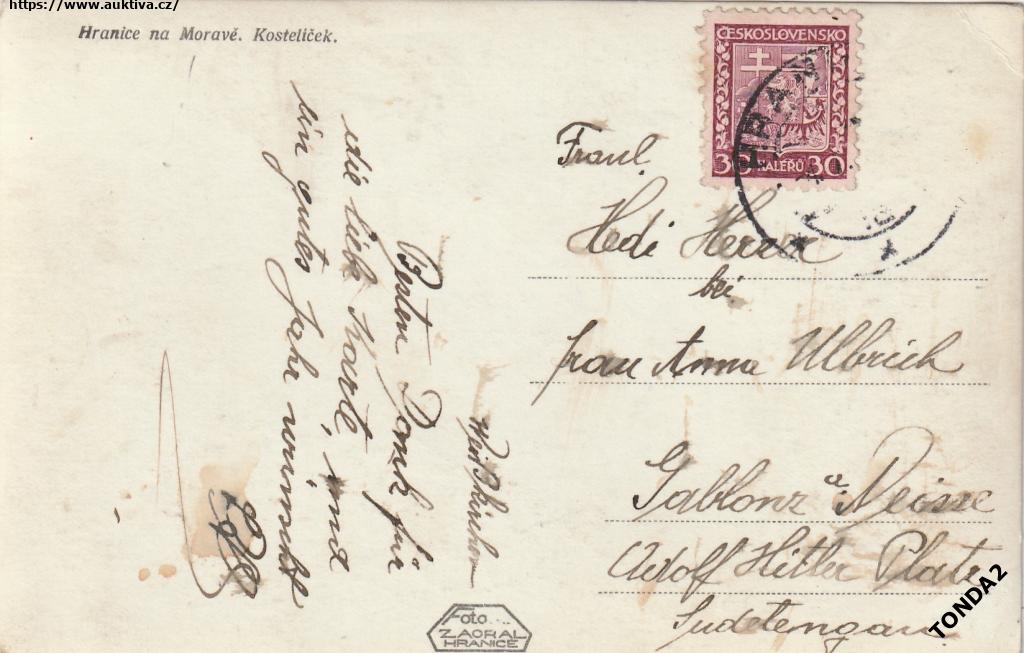 https://www.auktiva.cz/
Hranice na Moravě. Kostelíček.
ČESKOSLOVENSKO
30 HALÉŘŮ 30
HRAN
Besten Dank für
die liebe Karte, und
ein gutes Jahr wünscht
Fraul.
Hedi
bei
Frau Anna Ulbrich
Gablonz a. Neisse
Adolf Hitler Platz
Sudetengau
Foto
ZAORAL
HRANICE
TONDA2